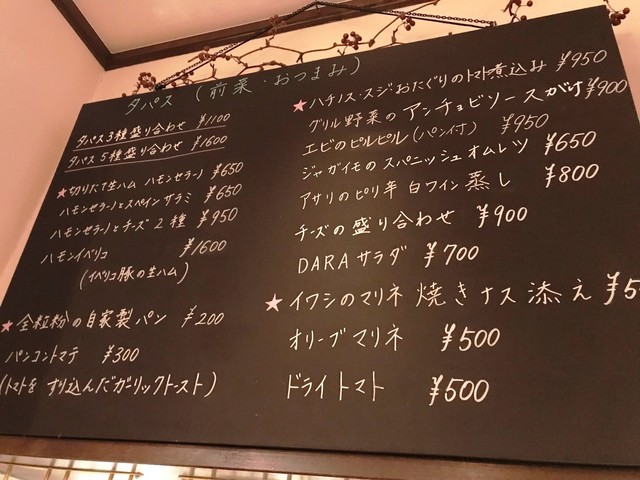 タパス (前菜・おつまみ)
タパス3種盛り合わせ ¥1100
タパス5種盛り合わせ ¥1600
★切りたて生ハム ハモンセラーノ ¥650
ハモンセラーノとスペインサラミ ¥650
ハモンセラーノとチーズ2種 ¥950
ハモンイベリコ ¥1600
(イベリコ豚の生ハム)
★全粒粉の自家製パン ¥200
パンコントマテ ¥300
(トマトをすり込んだガーリックトースト)
★ハチノス・スジおたぐりのトマト煮込み ¥950
グリル野菜のアンチョビソースがけ ¥900
エビのピルピル(パン付) ¥950
ジャガイモのスパニッシュオムレツ ¥650
アサリのピリ辛白ワイン蒸し ¥800
チーズの盛り合わせ ¥900
DARAサラダ ¥700
★イワシのマリネ 焼きナス添え
オリーブマリネ ¥500
ドライトマト ¥500